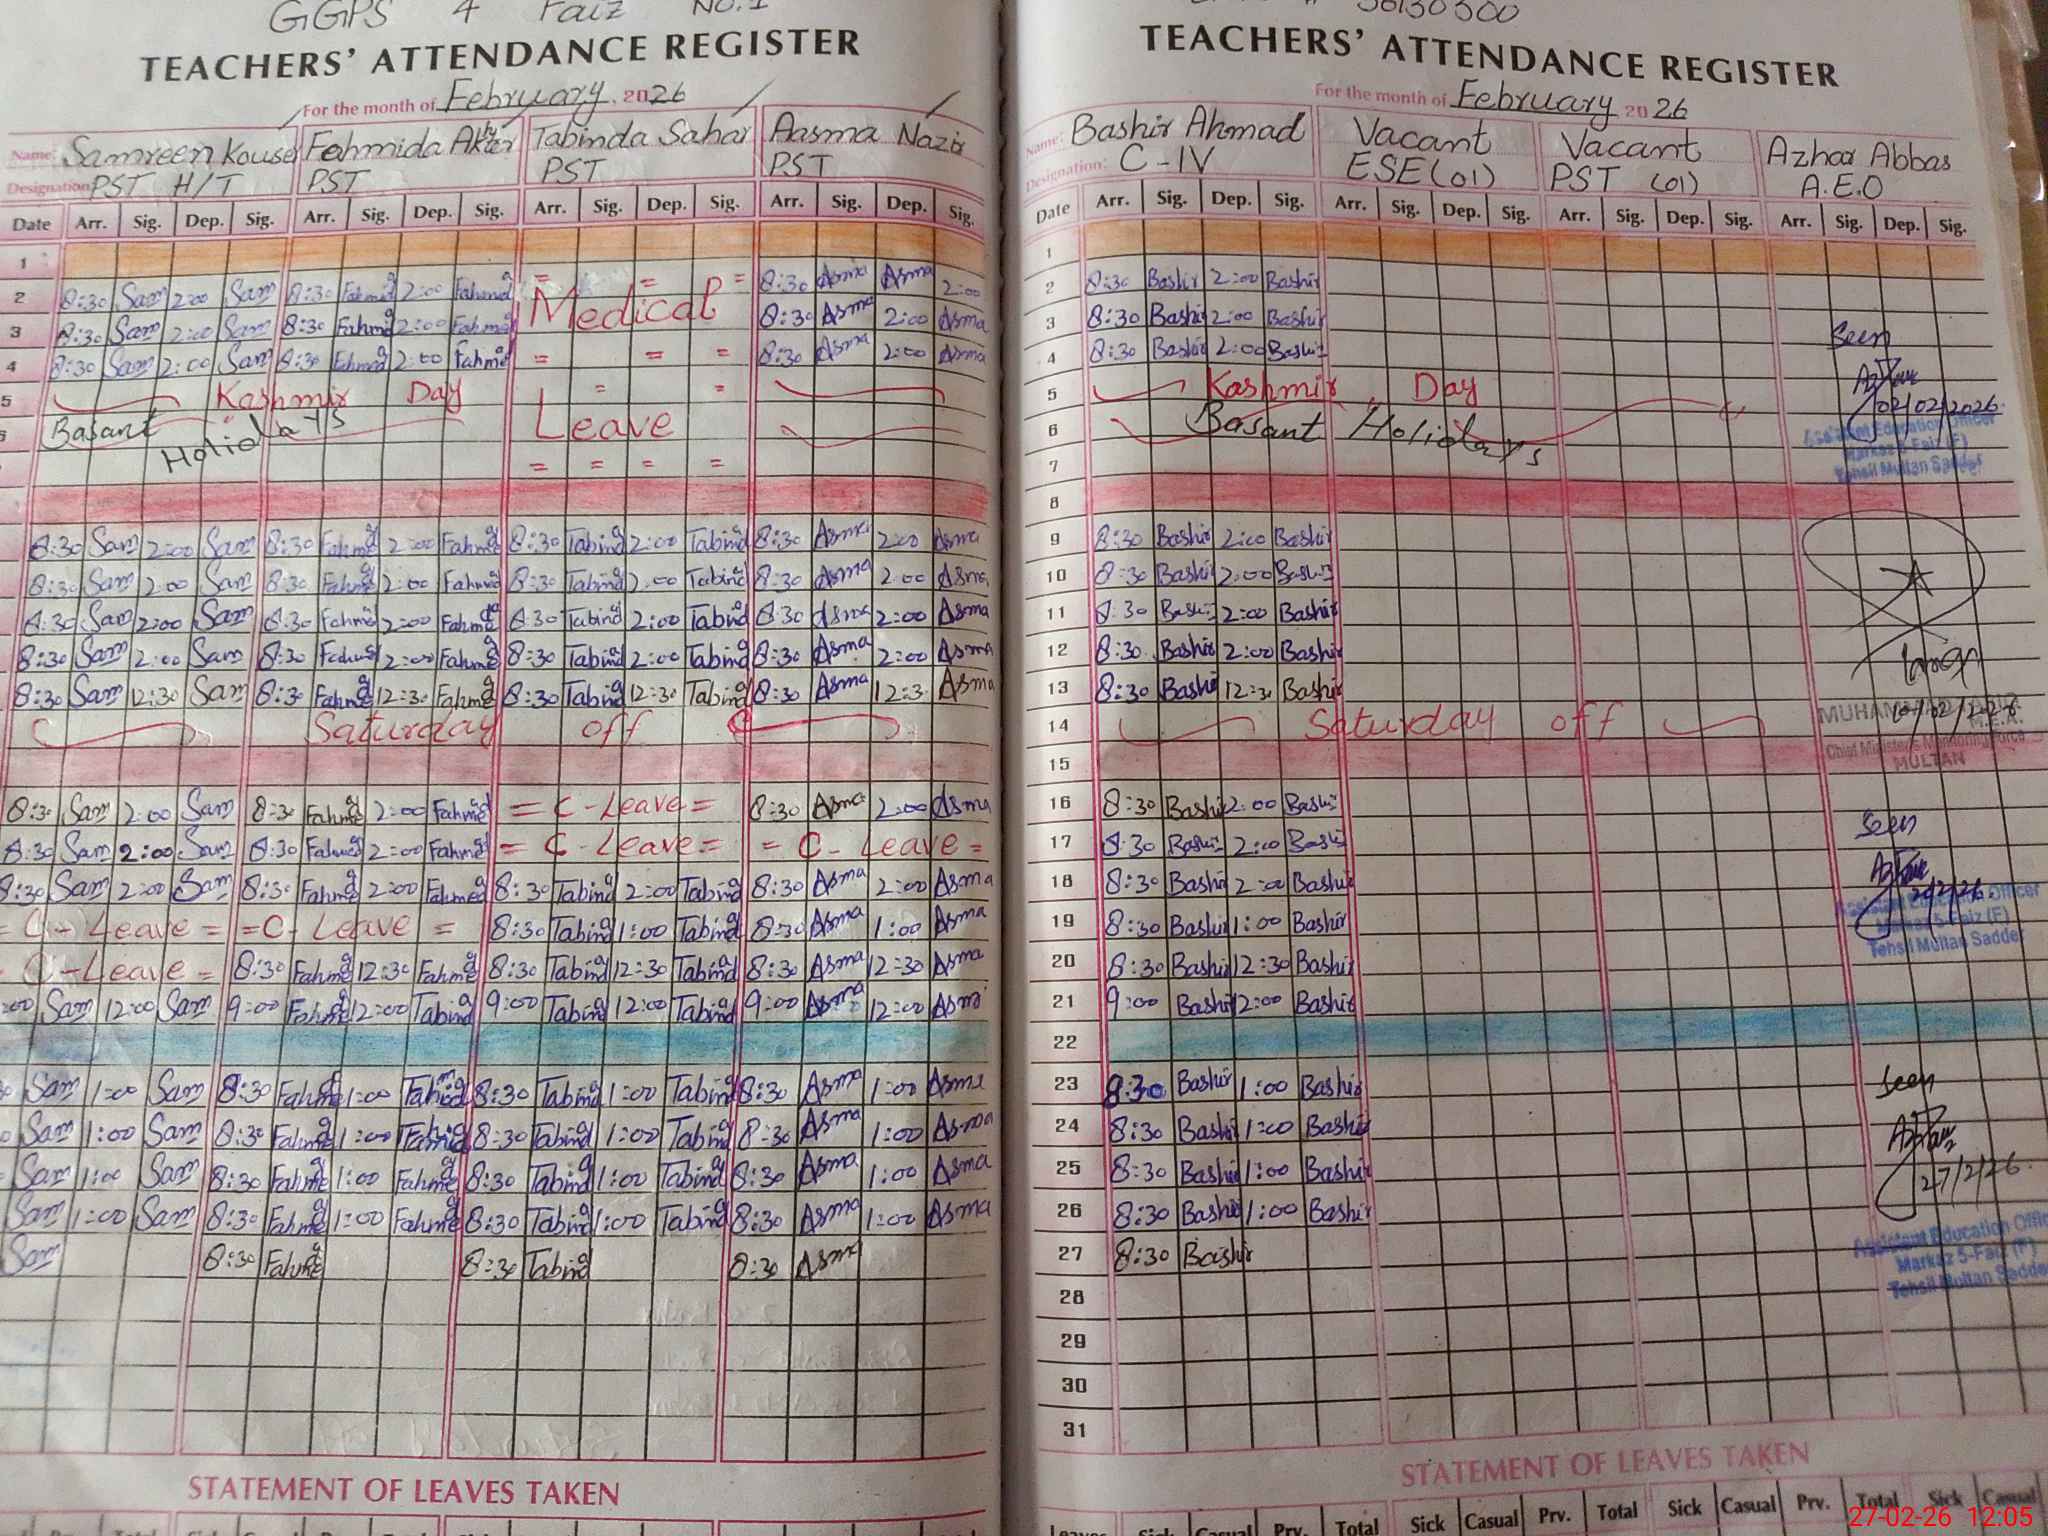 GGPS 4 Faiz No.1
TEACHERS' ATTENDANCE REGISTER
For the month of February, 2026
Name: Samreen Kouser Fahmida Akhtr Tabinda Sahar Aasma Nazir
Designation: PST H/T PST PST PST
Date Arr. Sig. Dep. Sig. Arr. Sig. Dep. Sig. Arr. Sig. Dep. Sig. Arr. Sig. Dep. Sig.
1
2 8:30 Sam 2:00 Sam 8:30 Fahmida 2:00 Fahmida = = = 8:30 Asma Asma 2:00
3 8:30 Sam 2:00 Sam 8:30 Fahmida 2:00 Fahmida Medical 8:30 Asma 2:00 Asma
4 8:30 Sam 2:00 Sam 8:30 Fahmida 2:00 Fahmida = = = 8:30 Asma 2:00 Asma
5 Kashmir Day = =
6 Basant Holidays Leave
= = = =
8:30 Sam 2:00 Sam 8:30 Fahmida 2:00 Fahmida 8:30 Tabinda 2:00 Tabinda 8:30 Asma 2:00 Asma
8:30 Sam 2:00 Sam 8:30 Fahmida 2:00 Fahmida 8:30 Tabinda 2:00 Tabinda 8:30 Asma 2:00 Asma
8:30 Sam 2:00 Sam 8:30 Fahmida 2:00 Fahmida 8:30 Tabinda 2:00 Tabinda 8:30 Asma 2:00 Asma
8:30 Sam 2:00 Sam 8:30 Fahmida 2:00 Fahmida 8:30 Tabinda 2:00 Tabinda 8:30 Asma 2:00 Asma
8:30 Sam 12:30 Sam 8:30 Fahmida 12:30 Fahmida 8:30 Tabinda 12:30 Tabinda 8:30 Asma 12:3 Asma
Saturday off
8:30 Sam 2:00 Sam 8:30 Fahmida 2:00 Fahmida = C-Leave = 8:30 Asma 2:00 Asma
8:30 Sam 2:00 Sam 8:30 Fahmida 2:00 Fahmida = C-Leave = = C-Leave =
8:30 Sam 2:00 Sam 8:30 Fahmida 2:00 Fahmida 8:30 Tabinda 2:00 Tabinda 8:30 Asma 2:00 Asma
= C-Leave = = C-Leave = 8:30 Tabinda 1:00 Tabinda 8:30 Asma 1:00 Asma
C-Leave = 8:30 Fahmida 12:30 Fahmida 8:30 Tabinda 12:30 Tabinda 8:30 Asma 12:30 Asma
:00 Sam 12:00 Sam 9:00 Fahmida 12:00 Tabinda 9:00 Tabinda 12:00 Tabinda 9:00 Asma 12:00 Asma
Sam 1:00 Sam 8:30 Fahmida 1:00 Fahmida 8:30 Tabinda 1:00 Tabinda 8:30 Asma 1:00 Asma
Sam 1:00 Sam 8:30 Fahmida 1:00 Fahmida 8:30 Tabinda 1:00 Tabinda 8:30 Asma 1:00 Asma
Sam 1:00 Sam 8:30 Fahmida 1:00 Fahmida 8:30 Tabinda 1:00 Tabinda 8:30 Asma 1:00 Asma
Sam 1:00 Sam 8:30 Fahmida 1:00 Fahmida 8:30 Tabinda 1:00 Tabinda 8:30 Asma 1:00 Asma
Sam 8:30 Fahmida 8:30 Tabinda 8:30 Asma
STATEMENT OF LEAVES TAKEN
TEACHERS' ATTENDANCE REGISTER
For the month of February 2026
Name: Bashir Ahmad Vacant Vacant Azhar Abbas
Designation: C-IV ESE (01) PST (01) A.E.O
Date Arr. Sig. Dep. Sig. Arr. Sig. Dep. Sig. Arr. Sig. Dep. Sig. Arr. Sig. Dep. Sig.
1
2 8:30 Bashir 2:00 Bashir
3 8:30 Bashir 2:00 Bashir Seen
4 8:30 Bashir 2:00 Bashir
5 Kashmir Day 02/02/2026
6 Basant Holidays Assistant Education Officer
Markaz 5-Faiz (F)
7 Tehsil Multan Sadder
8
9 8:30 Bashir 2:00 Bashir
10 8:30 Bashir 2:00 Bashir
11 8:30 Bashir 2:00 Bashir
12 8:30 Bashir 2:00 Bashir
13 8:30 Bashir 12:30 Bashir
14 Saturday off
M.E.A.
Chief Minister's Monitoring Force
15 MULTAN
16 8:30 Bashir 2:00 Bashir Seen
17 8:30 Bashir 2:00 Bashir
18 8:30 Bashir 2:00 Bashir
Assistant Education Officer
19 8:30 Bashir 1:00 Bashir Markaz 5-Faiz (F)
Tehsil Multan Sadder
20 8:30 Bashir 12:30 Bashir
21 9:00 Bashir 12:00 Bashir
22
23 8:30 Bashir 1:00 Bashir Seen
24 8:30 Bashir 1:00 Bashir
25 8:30 Bashir 1:00 Bashir 27/2/26
26 8:30 Bashir 1:00 Bashir
27 8:30 Bashir Assistant Education Offic
Markaz 5-Faiz (F)
Tehsil Multan Sadde
28
29
30
31
STATEMENT OF LEAVES TAKEN
Sick Casual Prv. Total Sick Casual Prv. Total Sick Casual Prv. Total Sick Casual
27-02-26 12:05